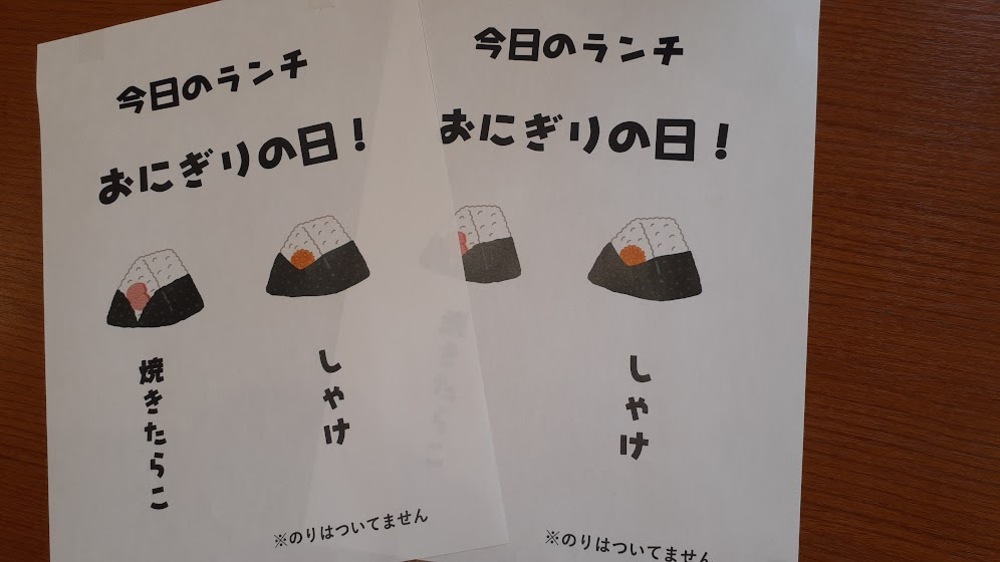 今日のランチ
おにぎりの日！
焼きたらこ
しゃけ
※のりはついてません
今日のランチ
おにぎりの日！
しゃけ
※のりはついてません